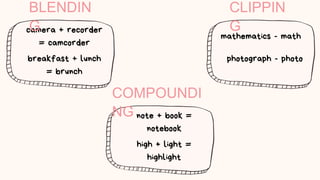 BLENDIN
G
camera + recorder
= camcorder
breakfast + lunch
= brunch
CLIPPIN
G
mathematics - math
photograph - photo
COMPOUNDI
NG
note + book =
notebook
high + light =
highlight